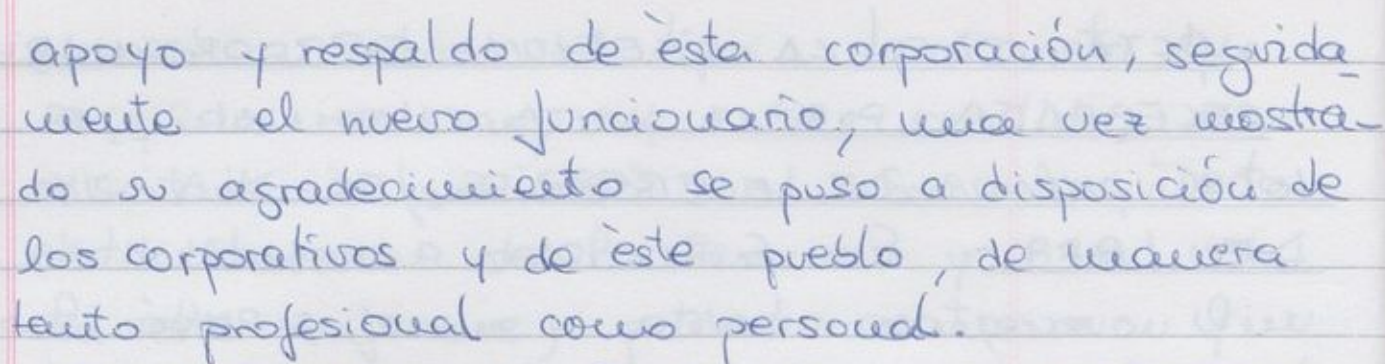 apoyo y respaldo de èsta corporación, seguida_
mente el nuevo funcionario, una vez mostra-
do su agradecimiento se puso a disposición de
los corporativos y de èste pueblo, de manera
tanto profesional como personal.